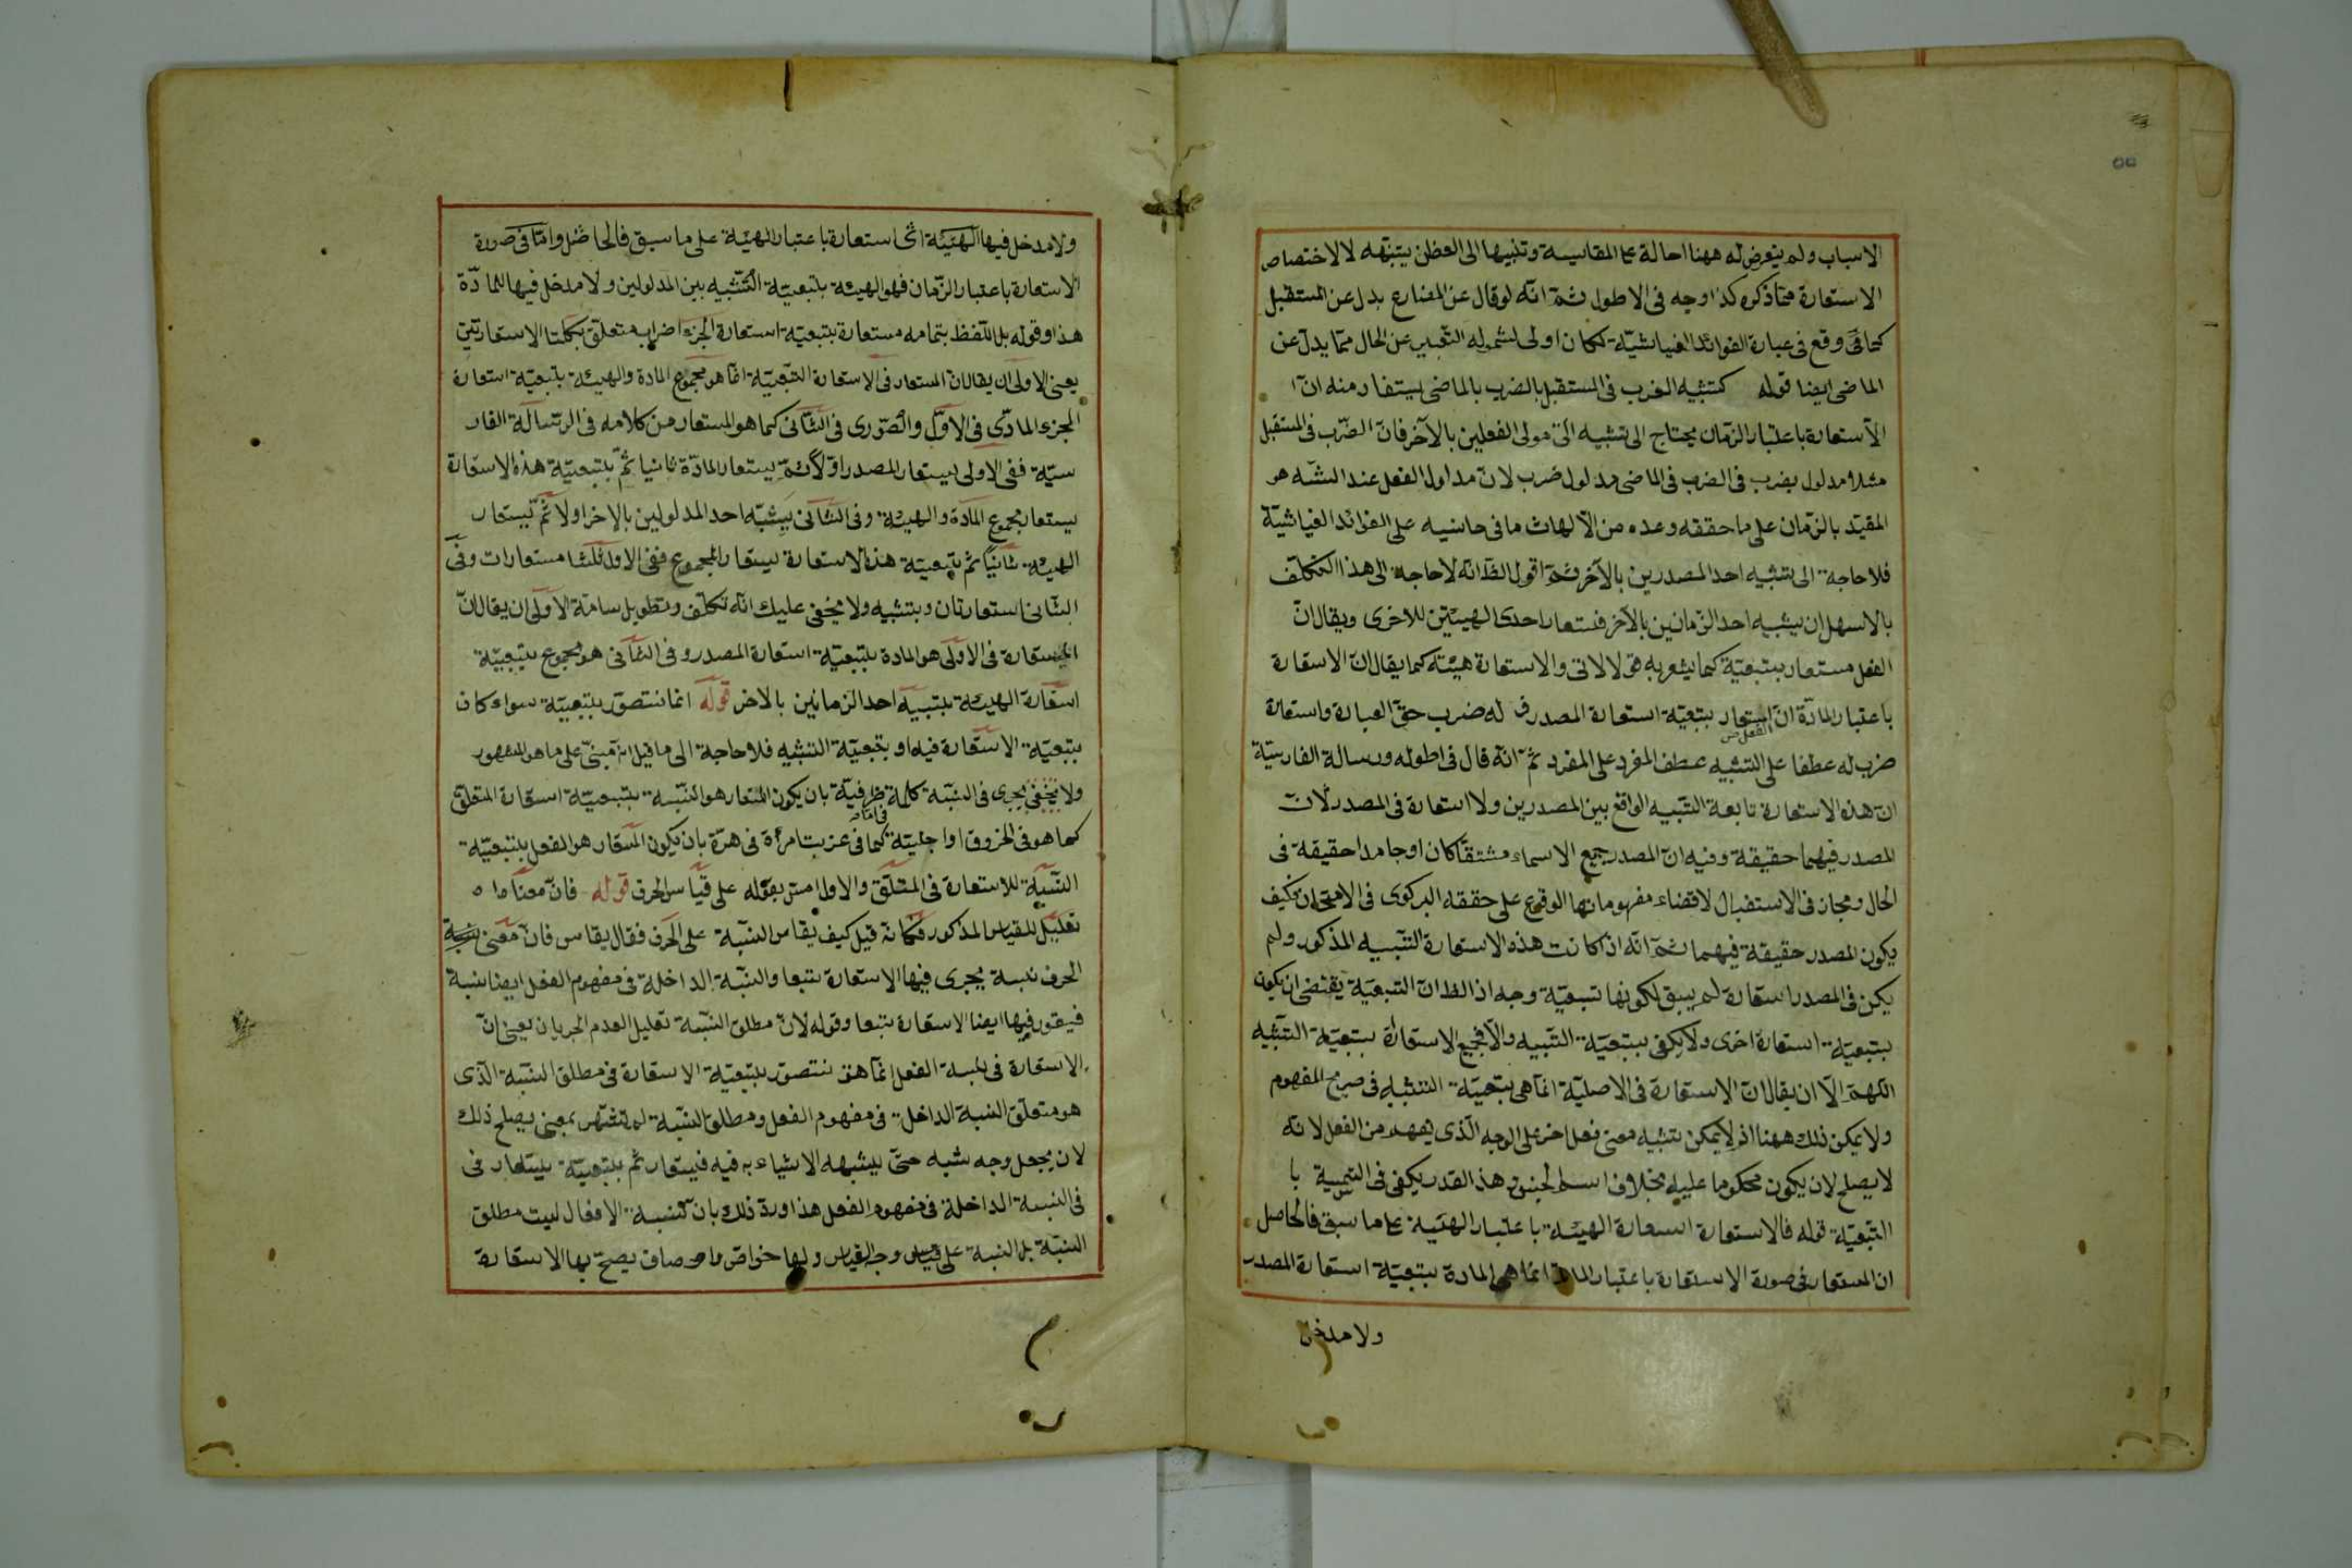 الاسباب ولم يتعرض له ههنا احالة على المقايسة وتنبيها الى الفطن يتنبّه له لاختصاص
الاستعارة مما ذكره كذا وجه فى الاطول ثمّ انّه لو قال عن المضارع بدل عن المستقبل
كما وقع فى عبارة الفوائد الغياثيّة لكان اولى لشموله التعبير عن الحال ممّا يدلّ عن
الماضى ايضا قوله كتشبيه الضرب فى المستقبل بالضرب بالماضى يستفاد منه انّ
الاستعارة باعتبار الزمان يحتاج الى تشبيه الفعلين بالآخر فانّ الضّرب فى المستقبل
مثلا مدلول يضرب فى الضرب فى الماضى مدلول ضرب لانّ مدلول الفعل عند السّه هو
المقيّد بالزّمان على ما حققه وعده من الآلهات ما فى حاشيه على الفوائد الغياثيّة
فلا حاجة الى تشبيه احد المصدرين بالآخر ثمّ اقول الظ انّه لا حاجة الى هذا التكلّف
بالاسهل ان يشبه احد الزّمانين بالآخر فتستعار احدى الهيئتين للاخرى ويقال انّ
الفعل مستعار بتبعيّة كما يشعر به والاستعارة هيئته كما يقال انّ الاستعارة
باعتبار المادّة انّ استعار بتبعيّة استعارة المصدر له ضرب حقّ العبارة واستعارة
الفعل ص
ضرب له عطفا على التشبيه عطف المفرد على المفرد ثمّ انّه قال فى اطوله ورسالة الفارسيّة
انّ هذه الاستعارة تابعة التّشبيه الواقع بين المصدرين ولا استعارة فى المصدر لانّ
المصدر فيهما حقيقة وفيه انّ المصدر جميع الاسماء مشتقّا كان او جامدا حقيقة فى
الحال ومجاز فى الاستقبال لاقتضاء مفهوماتها الوقوع على حققه البركوى فى الامتحان فكيف
يكون المصدر حقيقة فيهما ثمّ انّه اذ كانت هذه الاستعارة التّشبيه المذكور ولم
يكن فى المصدر استعارة لم يبق لكونها تبعيّة وجه اذ الظ انّ التبعيّة يقتضى ان يكون
بتبعيّة استعارة اخرى ولا يكفى بتبعيّة التّشبيه والّا فجميع الاستعارة بتبعيّة التّشبيه
اللّهمّ الّا ان يقال انّ الاستعارة فى الاصليّة انّما هى بتبعيّة التشبيه فى صريح المفهوم
ولا يمكن ذلك ههنا اذ لا يمكن تشبيه معنى فعل اخر على الوجه الّذى يفهم من الفعل لانّه
لا يصلح لان يكون محكوما عليه بخلاف اسم الجنس وهذا القدر يكفى فى التسمية با
التّبعيّة قوله فالاستعارة استعارة الهيئة باعتبار الهيئة على ما سبق فالحاصل
ان المستعار فى صورة الاستعارة باعتبار المادّة انّما هى المادة بتبعيّة استعارة المصدر
ولا مدخل
ولا مدخل فيها الهيئة استعارة باعتبار الهيئة على ما سبق فالحاصل وامّا فى صورة
الاستعارة باعتبار الزّمان فهو الهيئة بتبعيّة التّشبيه بين المدلولين ولا مدخل فيها للمادّة
هذا وقوله بل اللّفظ بتمامه مستعارة بتبعيّة استعارة الجزء اضراب متعلّق بكلتا الاستعارتين
يعنى الاولى ان يقال انّ المستعار فى الاستعارة التّبعيّة انّما هو مجموع المادة والهيئة بتبعيّة استعارة
الجزء المادّى فى الاوّل والصّورى فى الثّانى كما هو المستعار من كلامه فى الرّسالة الفار
سيّة ففى الاولى ليستعار المصدر اوّلا ثمّ يستعار المادّة ثانيا ثمّ بتبعيّة هذه الاستعارة
يستعار مجموع المادّة والهيئة وفى الثّانى يشبّه احد المدلولين بالاخر اولا ثمّ يستعار
الهيئة ثانيًا ثم بتبعيّة هذه الاستعارة يستعار المجموع ففى الاول ثلثا مستعارات وفى
الثّانى استعارتان وبتشبيه ولا يخفى عليك انّه تكلّف وتطويل الاولى ان يقال انّ
المستعارة فى الاولى هو المادة بتبعيّة استعارة المصدر وفى الثّانى هو مجموع بتبعيّة
استعارة الهيئة بتشبيه احد الزمانين بالاخر قوله انما تتصوّر بتبعيّة سواء كان
بتبعيّة الاستعارة فيه او بتبعيّة التشبيه فلا حاجة الى ما قيل انه مبنىّ على ما هو المشهور
ولا يخفى يجرى فى النسبة كلمة ظرفيّة بان يكون المستعار هو النّسبة بتبعيّة استعارة المتعلّق
كما هو فى الحروف او اجليّة كما فى عزبت امرأة فى هرّة بان يكون المستعار هو الفعل بتبعيّة
النّسبة للاستعارة فى المتعلّق والاول امس بقوله على قياس الحرف قوله فانّ معناها ه
تعليل للقياس المذكور فكانّه قيل كيف يقاس النسبة على الحرف فقال يقاس فانّ معنى
الحرف نسبة يجرى فيها الاستعارة تبعا والنّسبة الداخلة فى مفهوم الفعل ايضا نسبة
فيقور فيها ايضا الاستعارة تبعا وقوله لانّ مطلق النّسبة تعليل لعدم الجريان يعنى انّ
الاستعارة فى نسبة الفعل انّما هى تتصوّر بتبعيّة الاستعارة فى مطلق النسبة الّذى
هو متعلّق النسبة الداخلة فى مفهوم الفعل ومطلق النسبة لم تشتهر بمعنى يصلح ذلك
لان يجعل وجه شبه حتّى يشبهه الاشياء به فيه فيستعار ثمّ بتبعيّة يستعار فى
فى النسبة الداخلة فى مفهوم الفعل هذا وردّ ذلك بان كنسبة الافعال ليست مطلق
النسبة بل النسبة على قياس وجه القياس ولها خواصّ واوصاف يصحّ بها الاستعارة